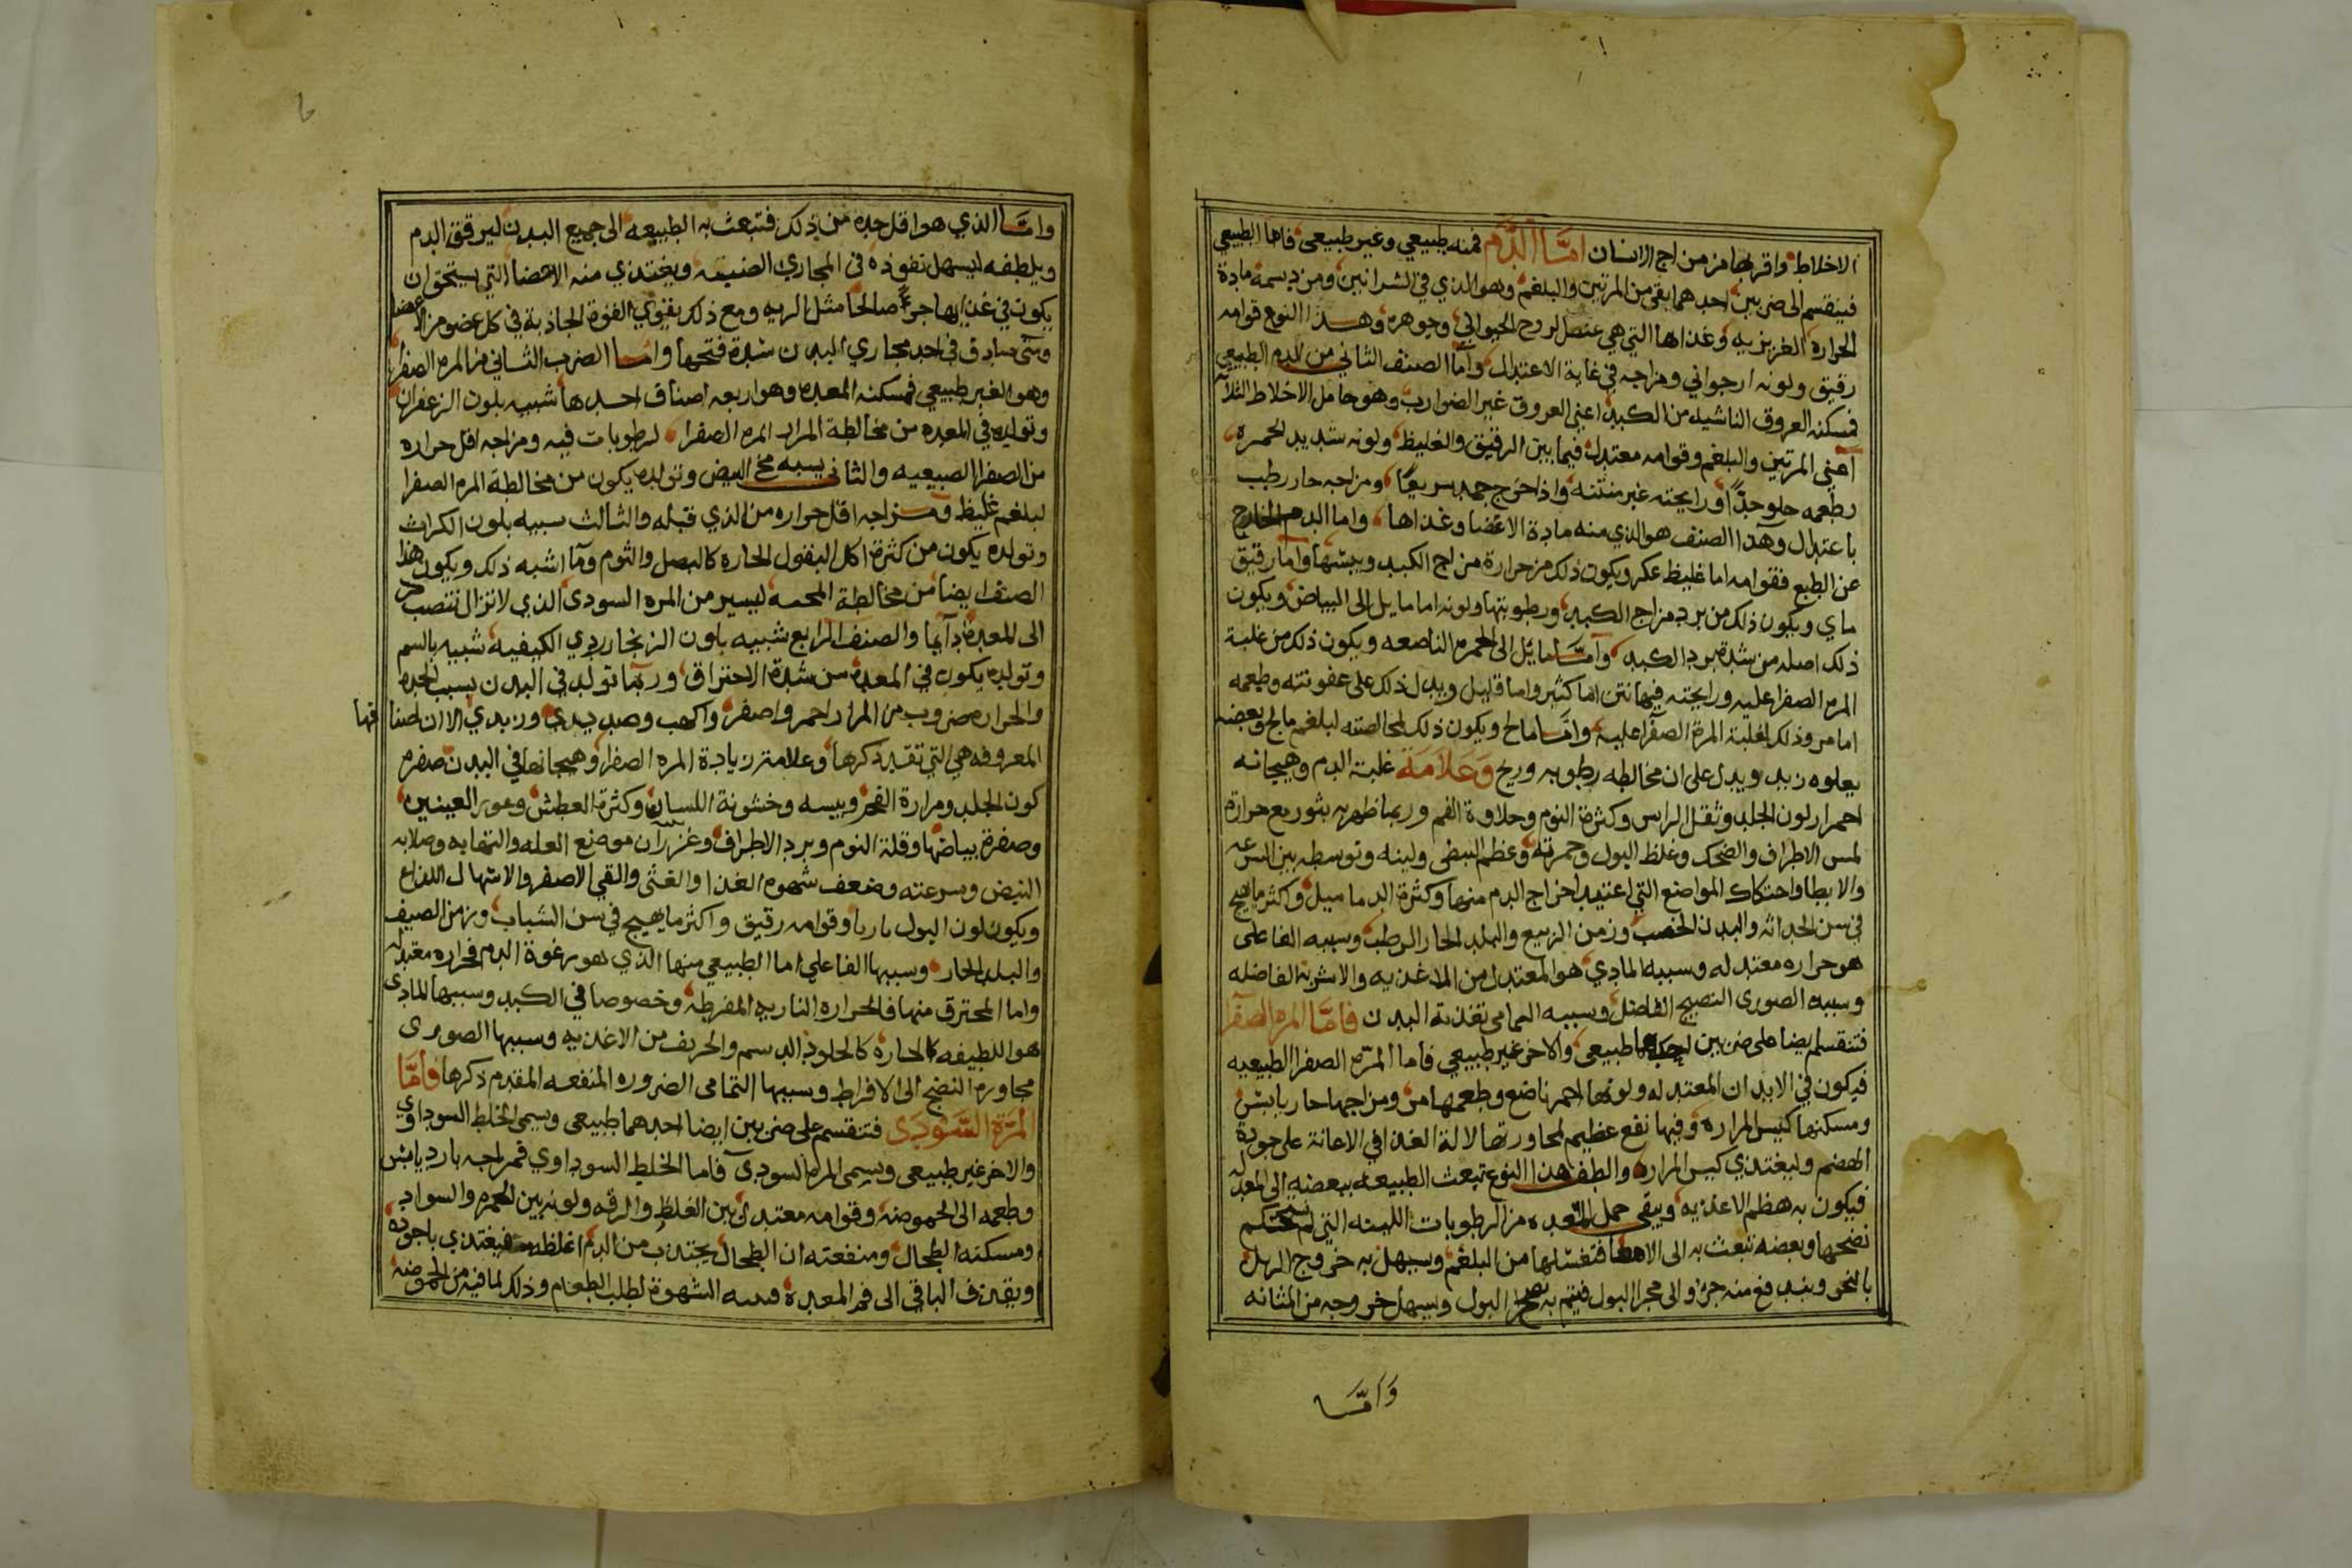 الاخلاط واقربها من مزاج الانسان امَّا الدَّم فمنه طبيعي وغير طبيعي فاما الطبيعي
فينقسم الى ضربين احدهما بقي من المرتين والبلغم وهو الذي في الشرانين ومن دسمه مادة
الحراره الغريزيه وغذاها التي هي عنصل لروح الحيواني وجوهره وهذا النوع قوامه
رقيق ولونه ارجواني ومزاجه في غاية الاعتدال وامّا الصنف الثاني من الدم الطبيعي
فمسكنه العروق الناشيه من الكبد اعني العروق غير الضوارب وهو حامل الاخلاط الثلاثه
اعني المرتين والبلغم وقوامه معتدل فيما بين الرقيق والغليظ ولونه شديد لحمره
وطعمه حلو جدًّا ورايحته غير منتنه واذا خرج جمد سريعًا ومزاجه حار رطب
باعتدال وهذا الصنف هو الذي منه مادة الاعضا وغذاها واما الدم الخارج
عن الطبع فقوامه اما غليظ عكر ويكون ذلك من حرارة مزاج الكبد ويبسها واما رقيق
ماي ويكون ذلك من برد مزاج الكبد ورطوبتها ولونه اما مايل الى البياض ويكون
ذلك اصله من شدة برد الكبد وامَّا مائل الى الحمره الناصعه ويكون ذلك من غلبة
المره الصفرا عليه ورايحته فيها نتن اما كثير واما قليل ويدل ذلك على عفونته وطعمه
اما مر وذلك لغلبة المرة الصفرا عليه وامَّا مالح ويكون ذلك لمخالصته لبلغم مالح وبعضه
يعلوه زبد ويدل على ان مخالطه رطوبه وريح وَعَلامَة غلبة الدم وهيجانه
احمرار لون الجلد وثقل الراس وكثرة النوم وحلاوة الفم وربما ظهر به بثور مع حرارة
لمس الاطراف والضحك وغلظ البول وحمرته وعظم النبض ولينه وتوسطه بين السرعه
والابطا واحتكاك المواضع التي اعتيد اخراج الدم منها وكثرة الدماميل واكثر ما يهيج
في سن الحداثه والبدن الخصب وزمن الربيع والبلد الحار الرطب وسببه الفاعلى
هو حراره معتدله وسببه المادي هو المعتدل من الاغذيه والاشربه الفاضله
وسببه الصورى النضيج الفاضل وسببه التمامى تغذية البدن فامّا المره الصّفرا
فتنقسم ايضا على ضربين احدهما طبيعي والاخر غير طبيعي فاما المرّه الصفرا الطبيعيه
فيكون في الابدان المعتدله ولونها احمر ناصع وطعمها مر ومزاجها حار يابس
ومسكنها كيس المراره وفيها نفع عظيم لمجاورتها لالة الغذا في الاعانة على جودة
الهضم وليغتذي كيس المراره والطف هذا النوع تبعث الطبيعه ببعضه الى المعده
فيكون به هظم الاغذيه وينقي خمل المعده من الرطوبات اللينه التي لم يستحكم
نضجها وبعضه تبعث به الى الامعا فتغسلها من البلغم ويسهل به خروج الزبل
بالنحو ويندفع منه جزؤ الى مجرا البول فيتم به نضج البول ويسهل خروجه من المثانه
وَامَّا
وامَّا الذي هو اقل حده من ذلك فتبعث به الطبيعه الى جميع البدن ليرقق الدم
ويلطفه ليسهل نفوذه في المجاري الضيقه ويغتذي منه الاعضا التي يستحق ان
يكون في غذايها جزؤ صالحا مثل الريه ومع ذلك يقوي القوة الجاذبة في كل عضو من الاعضا
ومتى صادق في احد مجاري البدن شدة فتحها وامّا الضرب الثاني من المره الصفرا
وهو الغير طبيعي فمسكنه المعده وهو اربعه اصناف احدها شبيه بلون الزعفران
وتوليده في المعده من مخالطة المرار المره الصفرا لرطوبات فيه ومزاجه اقل حراره
من الصفرا الطبيعيه والثاني يسبه مخ البيض وتولده يكون من مخالطة المره الصفرا
لبلغم غليظ ومزاجه اقل حراره من الذي قبله والثالث سبيه بلون الكراث
وتولده يكون من كثرة اكل البقول الحاره كالبصل والثوم وما اشبه ذلك ويكون هذا
الصنف ايضا من مخالطة المحه ليسير من المره السودى الذي لا تزال تنصب
الى المعدة دآيما والصنف الرابع شبيه بلون الزنجار ردي الكيفيه شبيه بالسم
وتولده يكون في المعدة من شدة الاحتراق وربما تولد في البدن بسبب لحده
والحراره ضروب من المرار احمر واصفر واكهب وصديدي وزبدي الا ان اصنافها
المعروفه هي التي تقدم ذكرها وعلامة زيادة المره الصفرا وهيجانها في البدن صفره
كون الجلد ومرارة الفم ويبسه وخشونة اللسان وكثرة العطش وعور العينين
وصفرة بياضها وقلة النوم وبرد الاطراف وغزران موضع العله والتهابه وصلابه
النبض وسرعته وضعف شهوه الغذا والغثى والقي الاصفر والاسهال اللذاع
ويكون لون البول ناريا وقوامه رقيق واكثر ما يهيج في سن الشباب وزمن الصيف
والبلد الحار وسببها الفاعلي اما الطبيعي منها الذي هو رغوة الدم فحراره معتدله
واما المحترق منها فالحراره الناريه المفرطه وخصوصا في الكبد وسببها المادى
هو اللطيفه الحاره كالحلو والدسم والحريف من الاغذيه وسببها الصورى
مجاورة النضج الى الافراط وسببها التمامى الضروره المنفعه المقدم ذكرها فامَّا
المرّة السَّودَى فتنقسم على ضربين ايضا احدهما طبيعى ويسمى الخلط السوداوي
والاخر غير طبيعى ويسمى المره السودى فاما الخلط السوداوي فمزاجه بارد يابس
وطعمه الى الحموضه وقوامه معتدل بين الغلظ والرقه ولونه بين الحمره والسواد
ومسكنه الطحال ومنفعته ان الطحال يجتذب من الدم اغلظه فيغتذي باجوده
ويقذف الباقي الى فم المعدة فينبه الشهوة لطلب الطعام وذلك لما فيه من الحموضه